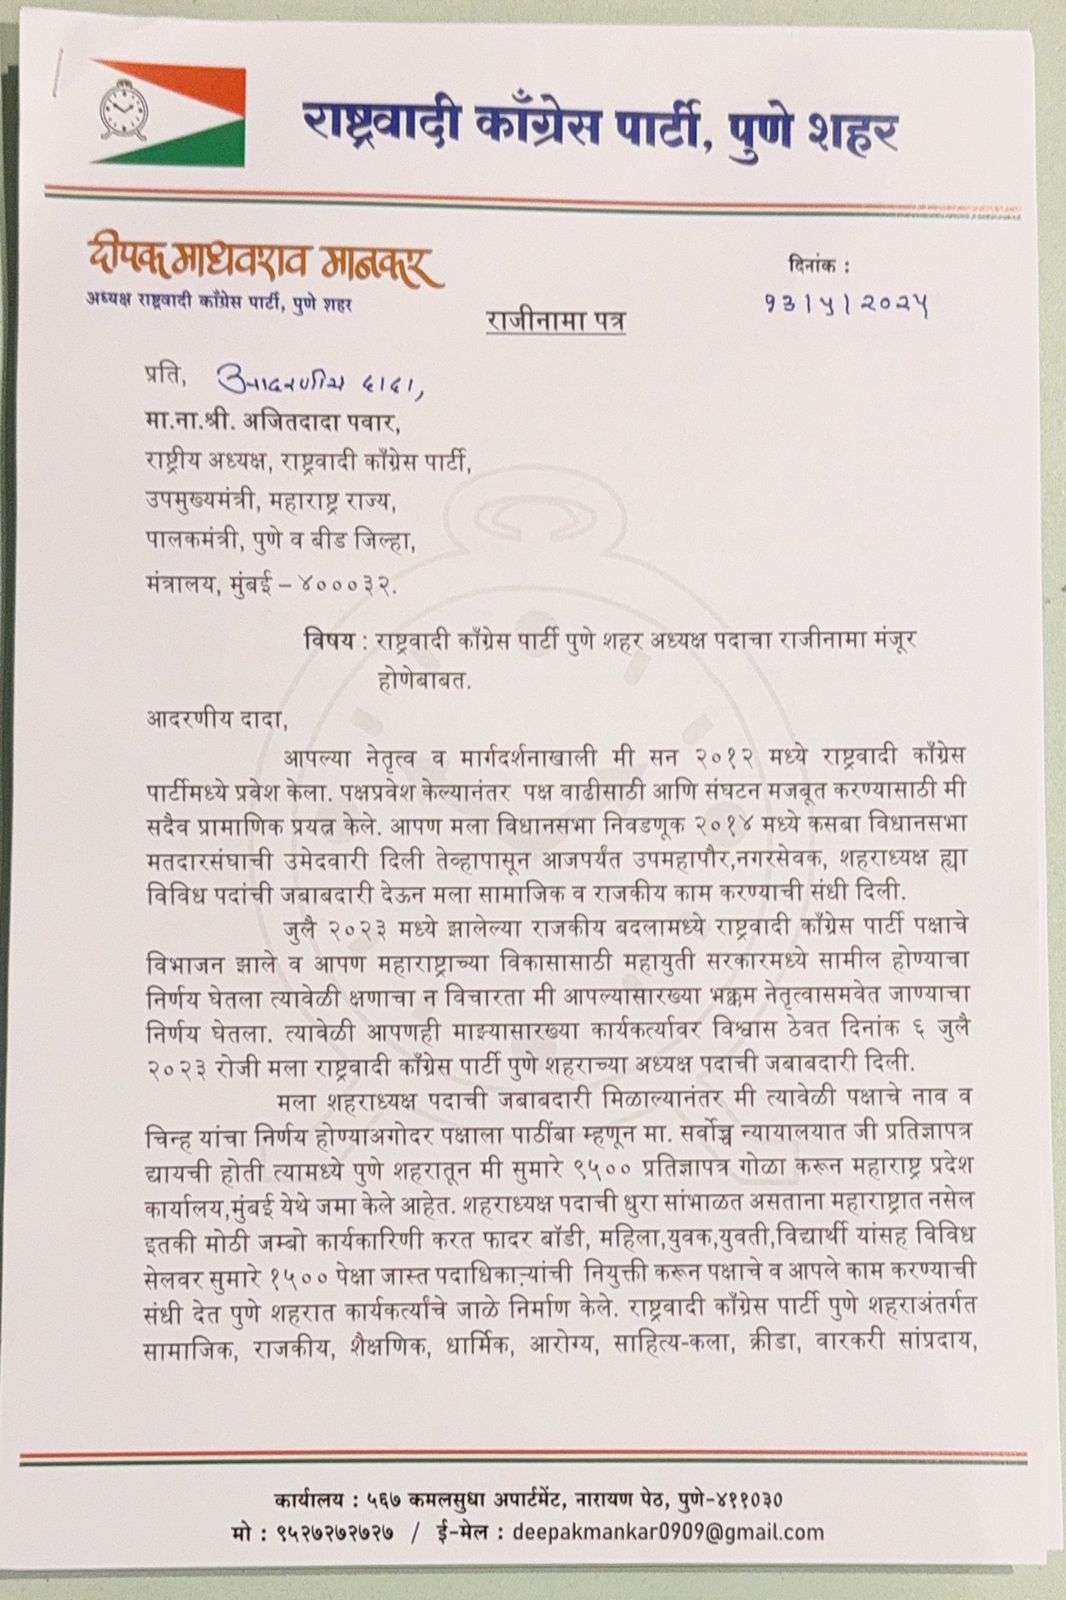 राष्ट्रवादी काँग्रेस पार्टी, पुणे शहर
दीपक माधवराव मानकर
अध्यक्ष राष्ट्रवादी काँग्रेस पार्टी, पुणे शहर
दिनांक :
१३/५/२०२५
राजीनामा पत्र
प्रति, आदरणीय दादा,
मा.ना.श्री. अजितदादा पवार,
राष्ट्रीय अध्यक्ष, राष्ट्रवादी काँग्रेस पार्टी,
उपमुख्यमंत्री, महाराष्ट्र राज्य,
पालकमंत्री, पुणे व बीड जिल्हा,
मंत्रालय, मुंबई – ४०००३२.
विषय : राष्ट्रवादी काँग्रेस पार्टी पुणे शहर अध्यक्ष पदाचा राजीनामा मंजूर
होणेबाबत.
आदरणीय दादा,
आपल्या नेतृत्व व मार्गदर्शनाखाली मी सन २०१२ मध्ये राष्ट्रवादी काँग्रेस
पार्टीमध्ये प्रवेश केला. पक्षप्रवेश केल्यानंतर पक्ष वाढीसाठी आणि संघटन मजबूत करण्यासाठी मी
सदैव प्रामाणिक प्रयत्न केले. आपण मला विधानसभा निवडणूक २०१४ मध्ये कसबा विधानसभा
मतदारसंघाची उमेदवारी दिली तेव्हापासून आजपर्यंत उपमहापौर,नगरसेवक, शहराध्यक्ष ह्या
विविध पदांची जबाबदारी देऊन मला सामाजिक व राजकीय काम करण्याची संधी दिली.
जुलै २०२३ मध्ये झालेल्या राजकीय बदलामध्ये राष्ट्रवादी काँग्रेस पार्टी पक्षाचे
विभाजन झाले व आपण महाराष्ट्राच्या विकासासाठी महायुती सरकारमध्ये सामील होण्याचा
निर्णय घेतला त्यावेळी क्षणाचा न विचारता मी आपल्यासारख्या भक्कम नेतृत्वासमवेत जाण्याचा
निर्णय घेतला. त्यावेळी आपणही माझ्यासारख्या कार्यकर्त्यावर विश्वास ठेवत दिनांक ६ जुलै
२०२३ रोजी मला राष्ट्रवादी काँग्रेस पार्टी पुणे शहराच्या अध्यक्ष पदाची जबाबदारी दिली.
मला शहराध्यक्ष पदाची जबाबदारी मिळाल्यानंतर मी त्यावेळी पक्षाचे नाव व
चिन्ह यांचा निर्णय होण्याअगोदर पक्षाला पाठींबा म्हणून मा. सर्वोच्च न्यायालयात जी प्रतिज्ञापत्र
द्यायची होती त्यामध्ये पुणे शहरातून मी सुमारे ९५०० प्रतिज्ञापत्र गोळा करून महाराष्ट्र प्रदेश
कार्यालय,मुंबई येथे जमा केले आहेत. शहराध्यक्ष पदाची धुरा सांभाळत असताना महाराष्ट्रात नसेल
इतकी मोठी जम्बो कार्यकारिणी करत फादर बॉडी, महिला,युवक,युवती,विद्यार्थी यांसह विविध
सेलवर सुमारे १५०० पेक्षा जास्त पदाधिकाऱ्यांची नियुक्ती करून पक्षाचे व आपले काम करण्याची
संधी देत पुणे शहरात कार्यकर्त्यांचे जाळे निर्माण केले. राष्ट्रवादी काँग्रेस पार्टी पुणे शहराअंतर्गत
सामाजिक, राजकीय, शैक्षणिक, धार्मिक, आरोग्य, साहित्य-कला, क्रीडा, वारकरी सांप्रदाय,
कार्यालय : ५६७ कमलसुधा अपार्टमेंट, नारायण पेठ, पुणे-४११०३०
मो : ९५२७२७२७२७ / ई-मेल : deepakmankar0909@gmail.com